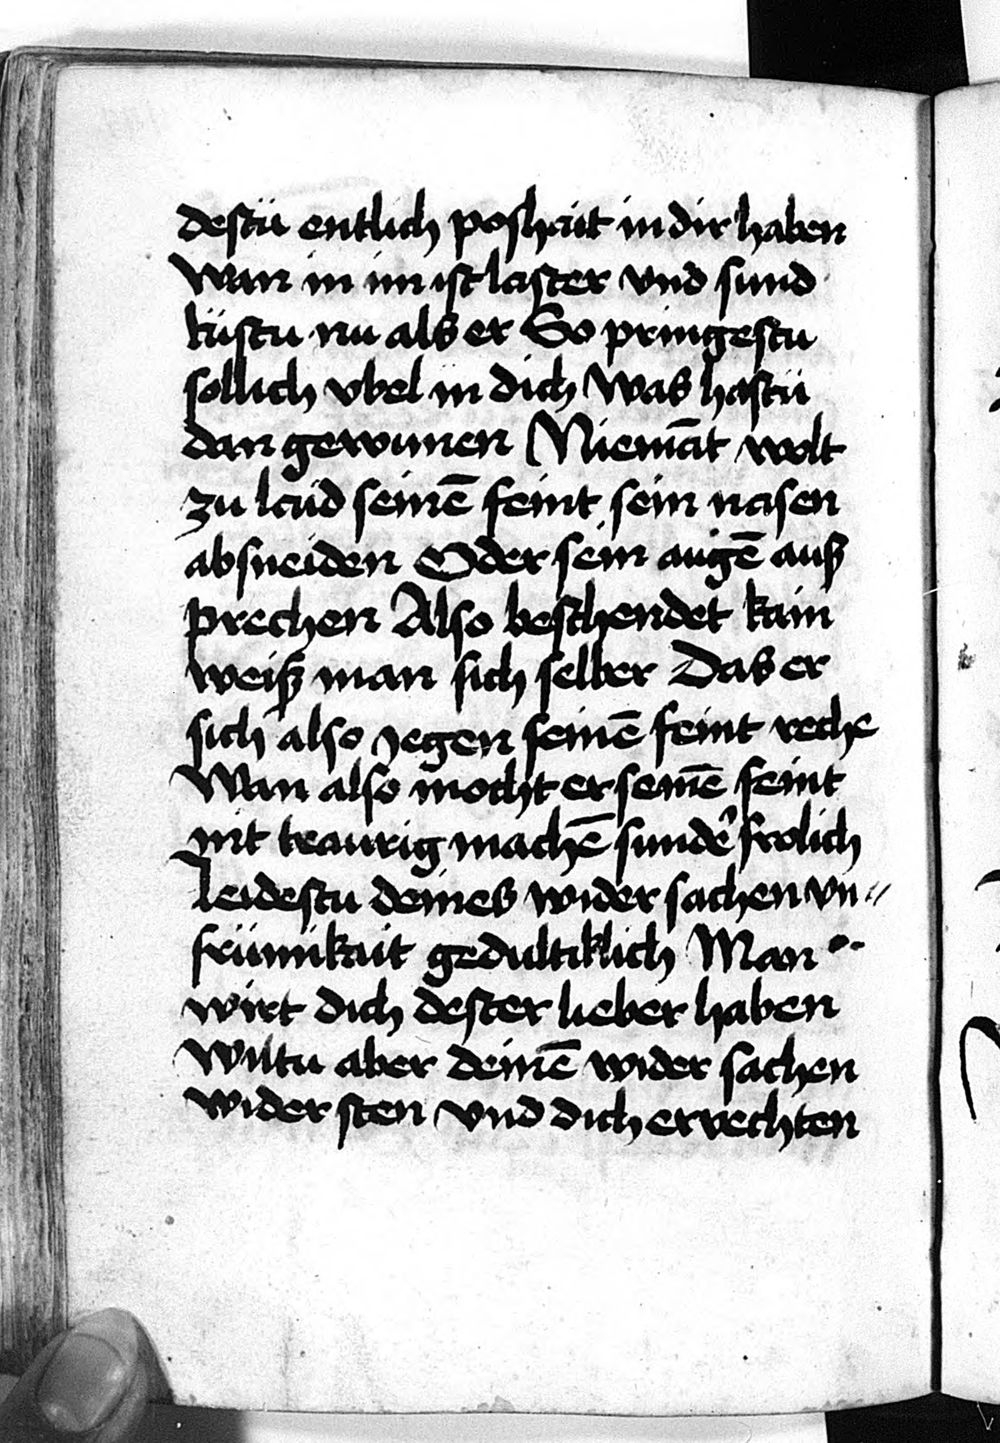 destu entlich poshait in dir haben
Wan in im ist laster vnd sund
tustu nu als er So pringestu
sollich vbel in dich Was hastu
dan gewunen Niemāt wolt
zu laid seinē feint sein nasen
absneiden Oder sein augē auß
prechen Also beschendet kain
weiß man sich selber Das er
sich also gegen seinē feint reche
Wan also mocht er seinē feint
nit traurig machē sunder frolich
Leidestu deines wider sachen vn
frumikait gedultiklich Man
wirt dich dester lieber haben
Wiltu aber deinē wider sachen
wider sten vnd dich errechten